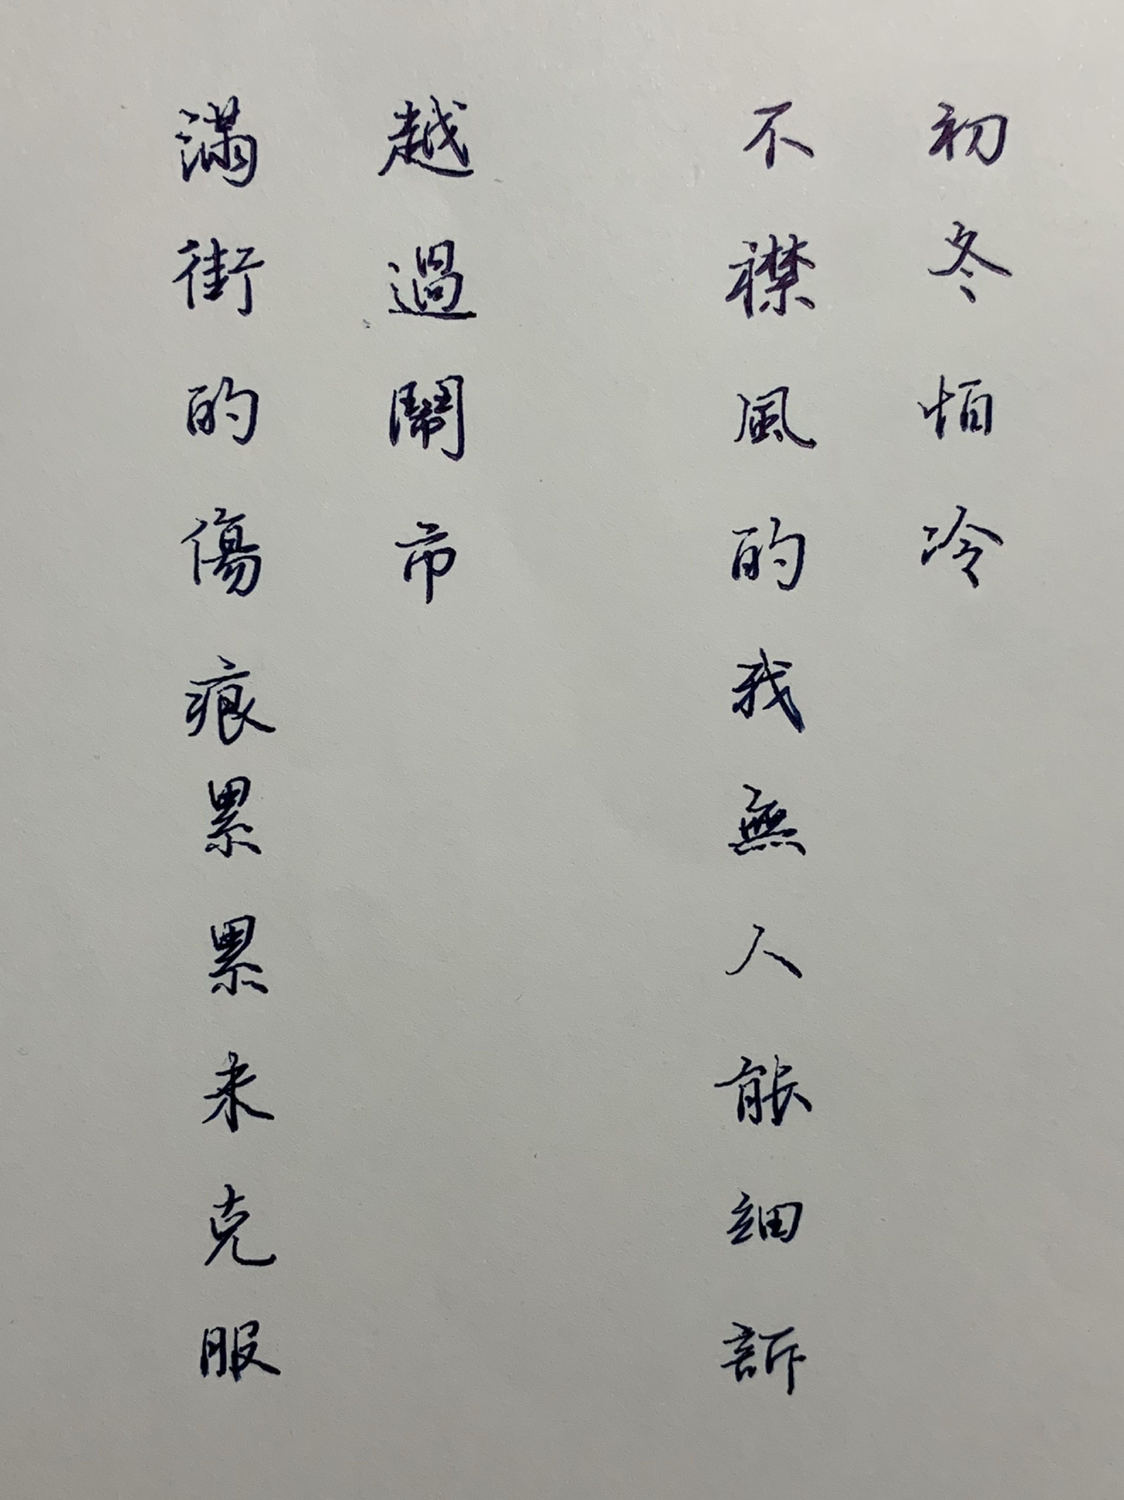 初冬怕冷
不襟風的我無人能細訴
越過鬧市
滿街的傷痕累累未克服